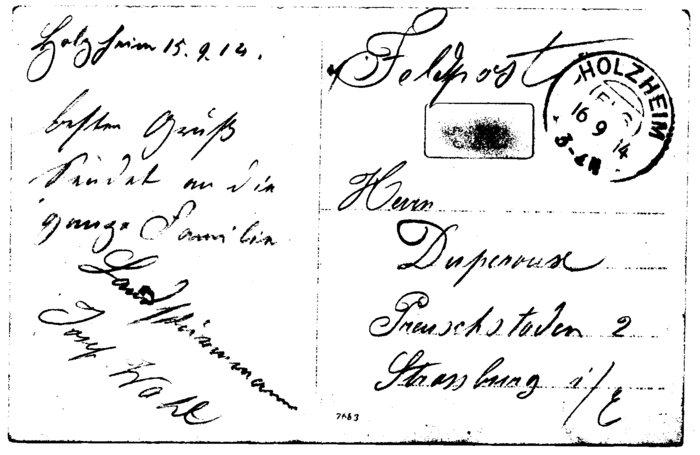 Holzheim 15.9.14.
besten Gruß
sendet an die
ganze Familie
Landsturmmann
Josef Wahl
Feldpost
HOLZHEIM
16 9 14
3-4N
Herrn
Duperoux
Preuschstaden 2
Strassburg i/E
7683